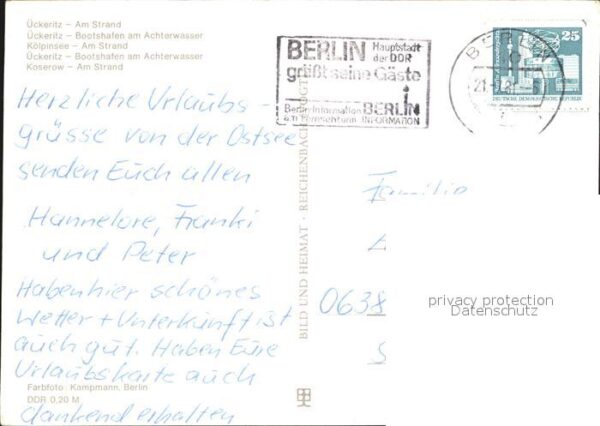 Ückeritz – Am Strand
Ückeritz – Bootshafen am Achterwasser
Kölpinsee – Am Strand
Ückeritz – Bootshafen am Achterwasser
Koserow – Am Strand
Herzliche Urlaubs-
grüsse von der Ostsee
senden Euch allen
Hannelore, Franki
und Peter
Haben hier schönes
Wetter + Unterkunft ist
auch gut. Haben Eure
Urlaubskarte auch
dankend erhalten
Farbfoto: Kampmann, Berlin
DDR 0,20 M
BILD UND HEIMAT · REICHENBACH
BERLIN Hauptstadt
der DDR
grüßt seine Gäste
Berlin-Information BERLIN
am Fernsehturm INFORMATION
BERLIN
25
DEUTSCHE DEMOKRATISCHE REPUBLIK
Familie
0638
privacy protection
Datenschutz